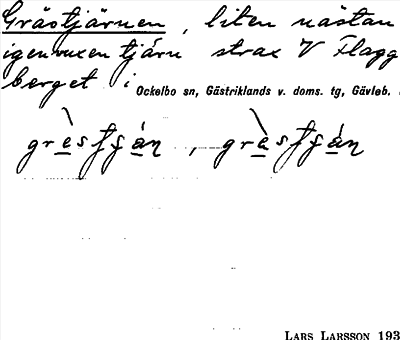 Gråstjärnen, liten nästan
igenvuxen tjärn strax V Flagg
berget i Ockelbo sn, Gästriklands v. doms. tg, Gävleb.
LARS LARSSON 193